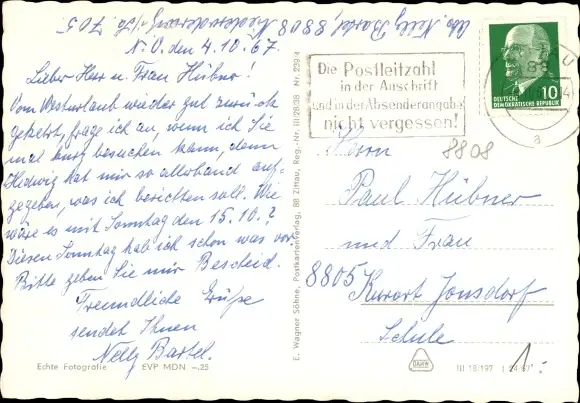 Abs. Nelly Bartel, 8808 Niederoderwitz
N.O. den 4.10.67.
Lieber Herr u. Frau Hübner!
Vom Westurlaub wieder gut zurück
gekehrt, frage ich an, wenn ich Sie
mal kurz besuchen kann, denn
Hedwig hat mir so allerhand auf-
gegeben, was ich berichten soll. Wie
wäre es mit Sonntag den 15.10.?
Diesen Sonntag hab ich schon was vor.
Bitte geben Sie mir Bescheid.
Freundliche Grüße
sendet Ihnen
Nelly Bartel.
Echte Fotografie EVP MDN –.25
E. Wagner Söhne, Postkartenverlag, 88 Zittau, Reg.-Nr. III/28/38 Nr. 2394
Die Postleitzahl
in der Anschrift
und in der Absenderangabe
nicht vergessen!
10
DEUTSCHE
DEMOKRATISCHE REPUBLIK
a
8808
Herrn
Paul Hübner
und Frau
8805 Kurort Jonsdorf
Schule
III 18/197
1.-